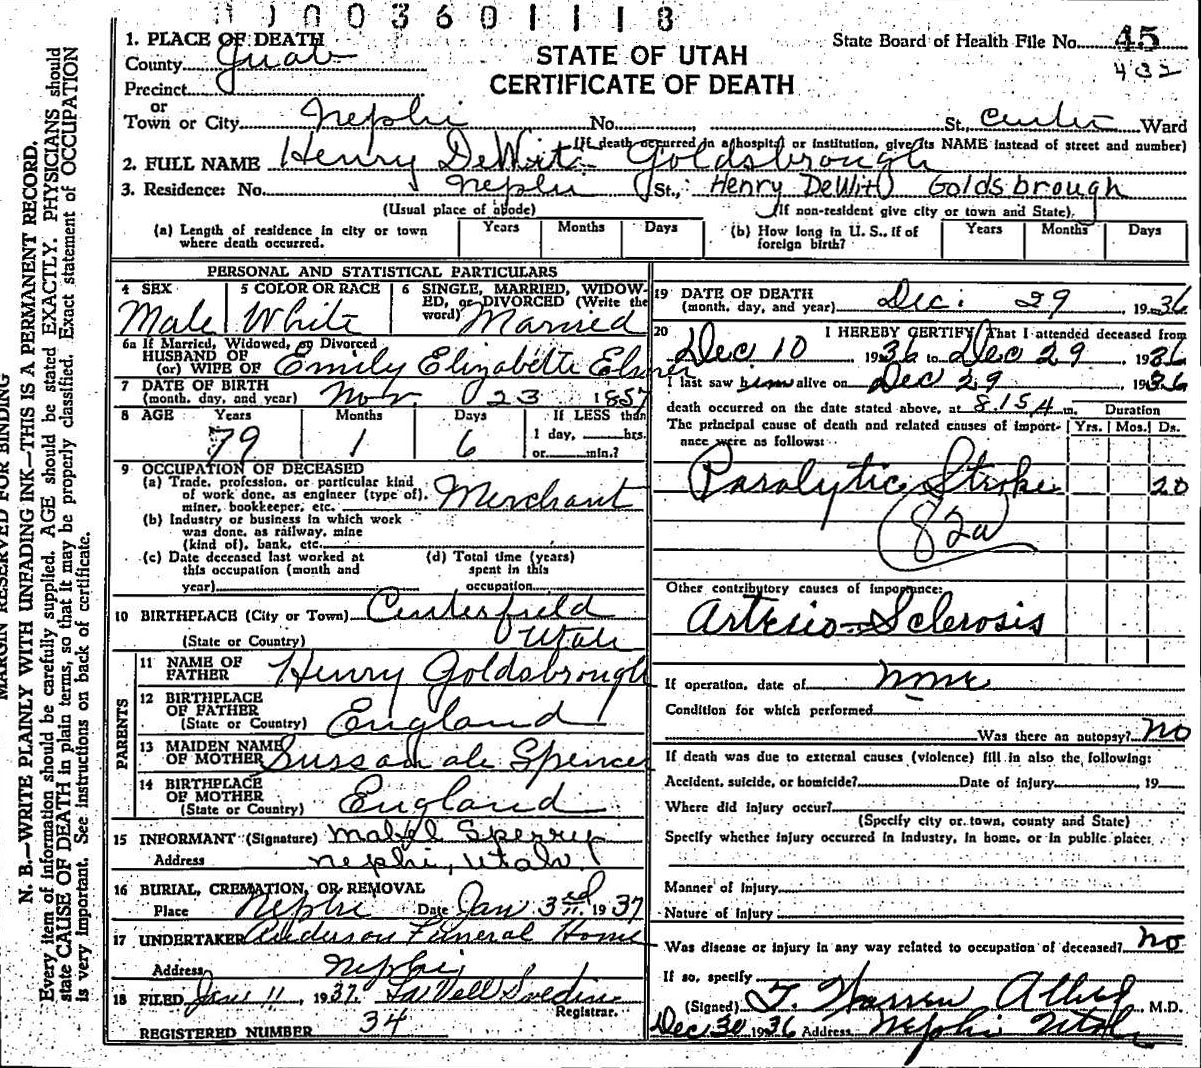 003601118
1. PLACE OF DEATH
County Juab
State Board of Health File No. 45
432
STATE OF UTAH
CERTIFICATE OF DEATH
Precinct
or
Town or City Nephi No. St., Center Ward
(If death occurred in a hospital or institution, give its NAME instead of street and number)
2. FULL NAME Henry DeWitt Goldsbrough
3. Residence: No. Nephi St., Henry DeWitt Goldsbrough
(Usual place of abode) (If non-resident give city or town and State)
(a) Length of residence in city or town where death occurred. Years Months Days (b) How long in U. S., if of foreign birth? Years Months Days
PERSONAL AND STATISTICAL PARTICULARS
4 SEX 5 COLOR OR RACE 6 SINGLE, MARRIED, WIDOWED, or DIVORCED (Write the word)
Male White Married
6a If Married, Widowed, or Divorced
HUSBAND OF
(or) WIFE OF Emily Elizabette Elsner
7 DATE OF BIRTH
(month, day, and year) Nov. 23 1857
8 AGE Years Months Days If LESS than
79 1 6 1 day, hrs.
or min.?
9 OCCUPATION OF DECEASED
(a) Trade, profession, or particular kind
of work done, as engineer (type of),
miner, bookkeeper, etc. Merchant
(b) Industry or business in which work
was done, as railway, mine
(kind of), bank, etc.
(c) Date deceased last worked at
this occupation (month and
year)
(d) Total time (years)
spent in this
occupation
10 BIRTHPLACE (City or Town) Centerfield
(State or Country) Utah
PARENTS
11 NAME OF
FATHER Henry Goldsbrough
12 BIRTHPLACE
OF FATHER
(State or Country) England
13 MAIDEN NAME
OF MOTHER Sussanah Spencer
14 BIRTHPLACE
OF MOTHER
(State or Country) England
15 INFORMANT (Signature) Mabel Sperry
Address Nephi, Utah
16 BURIAL, CREMATION, OR REMOVAL
Place Nephi Date Jan. 3rd 1937
17 UNDERTAKER Anderson Funeral Home
Address Nephi
18 FILED Jan 11, 1937.
Registrar.
REGISTERED NUMBER 34
19 DATE OF DEATH
(month, day, and year) Dec. 29 1936
20 I HEREBY CERTIFY, That I attended deceased from
Dec 10, 1936 to Dec 29 1936
I last saw him alive on Dec 29 1936
death occurred on the date stated above, at 8.15 A m. Duration
The principal cause of death and related causes of importance were as follows: Yrs. Mos. Ds.
Paralytic Stroke 20
82a
Other contributory causes of importance:
Arterio-Sclerosis
If operation, date of none
Condition for which performed
Was there an autopsy? no
If death was due to external causes (violence) fill in also the following:
Accident, suicide, or homicide? Date of injury 19
Where did injury occur?
(Specify city or town, county and State)
Specify whether injury occurred in industry, in home, or in public place:
Manner of Injury
Nature of Injury
Was disease or injury in any way related to occupation of deceased? no
If so, specify
(Signed) T. Warren M.D.
Dec 30 1936 Address Nephi Utah
MARGIN RESERVED FOR BINDING
N. B.—WRITE PLAINLY WITH UNFADING INK—THIS IS A PERMANENT RECORD.
Every item of information should be carefully supplied. AGE should be stated EXACTLY. PHYSICIANS should
state CAUSE OF DEATH in plain terms, so that it may be properly classified. Exact statement of OCCUPATION
is very important. See instructions on back of certificate.